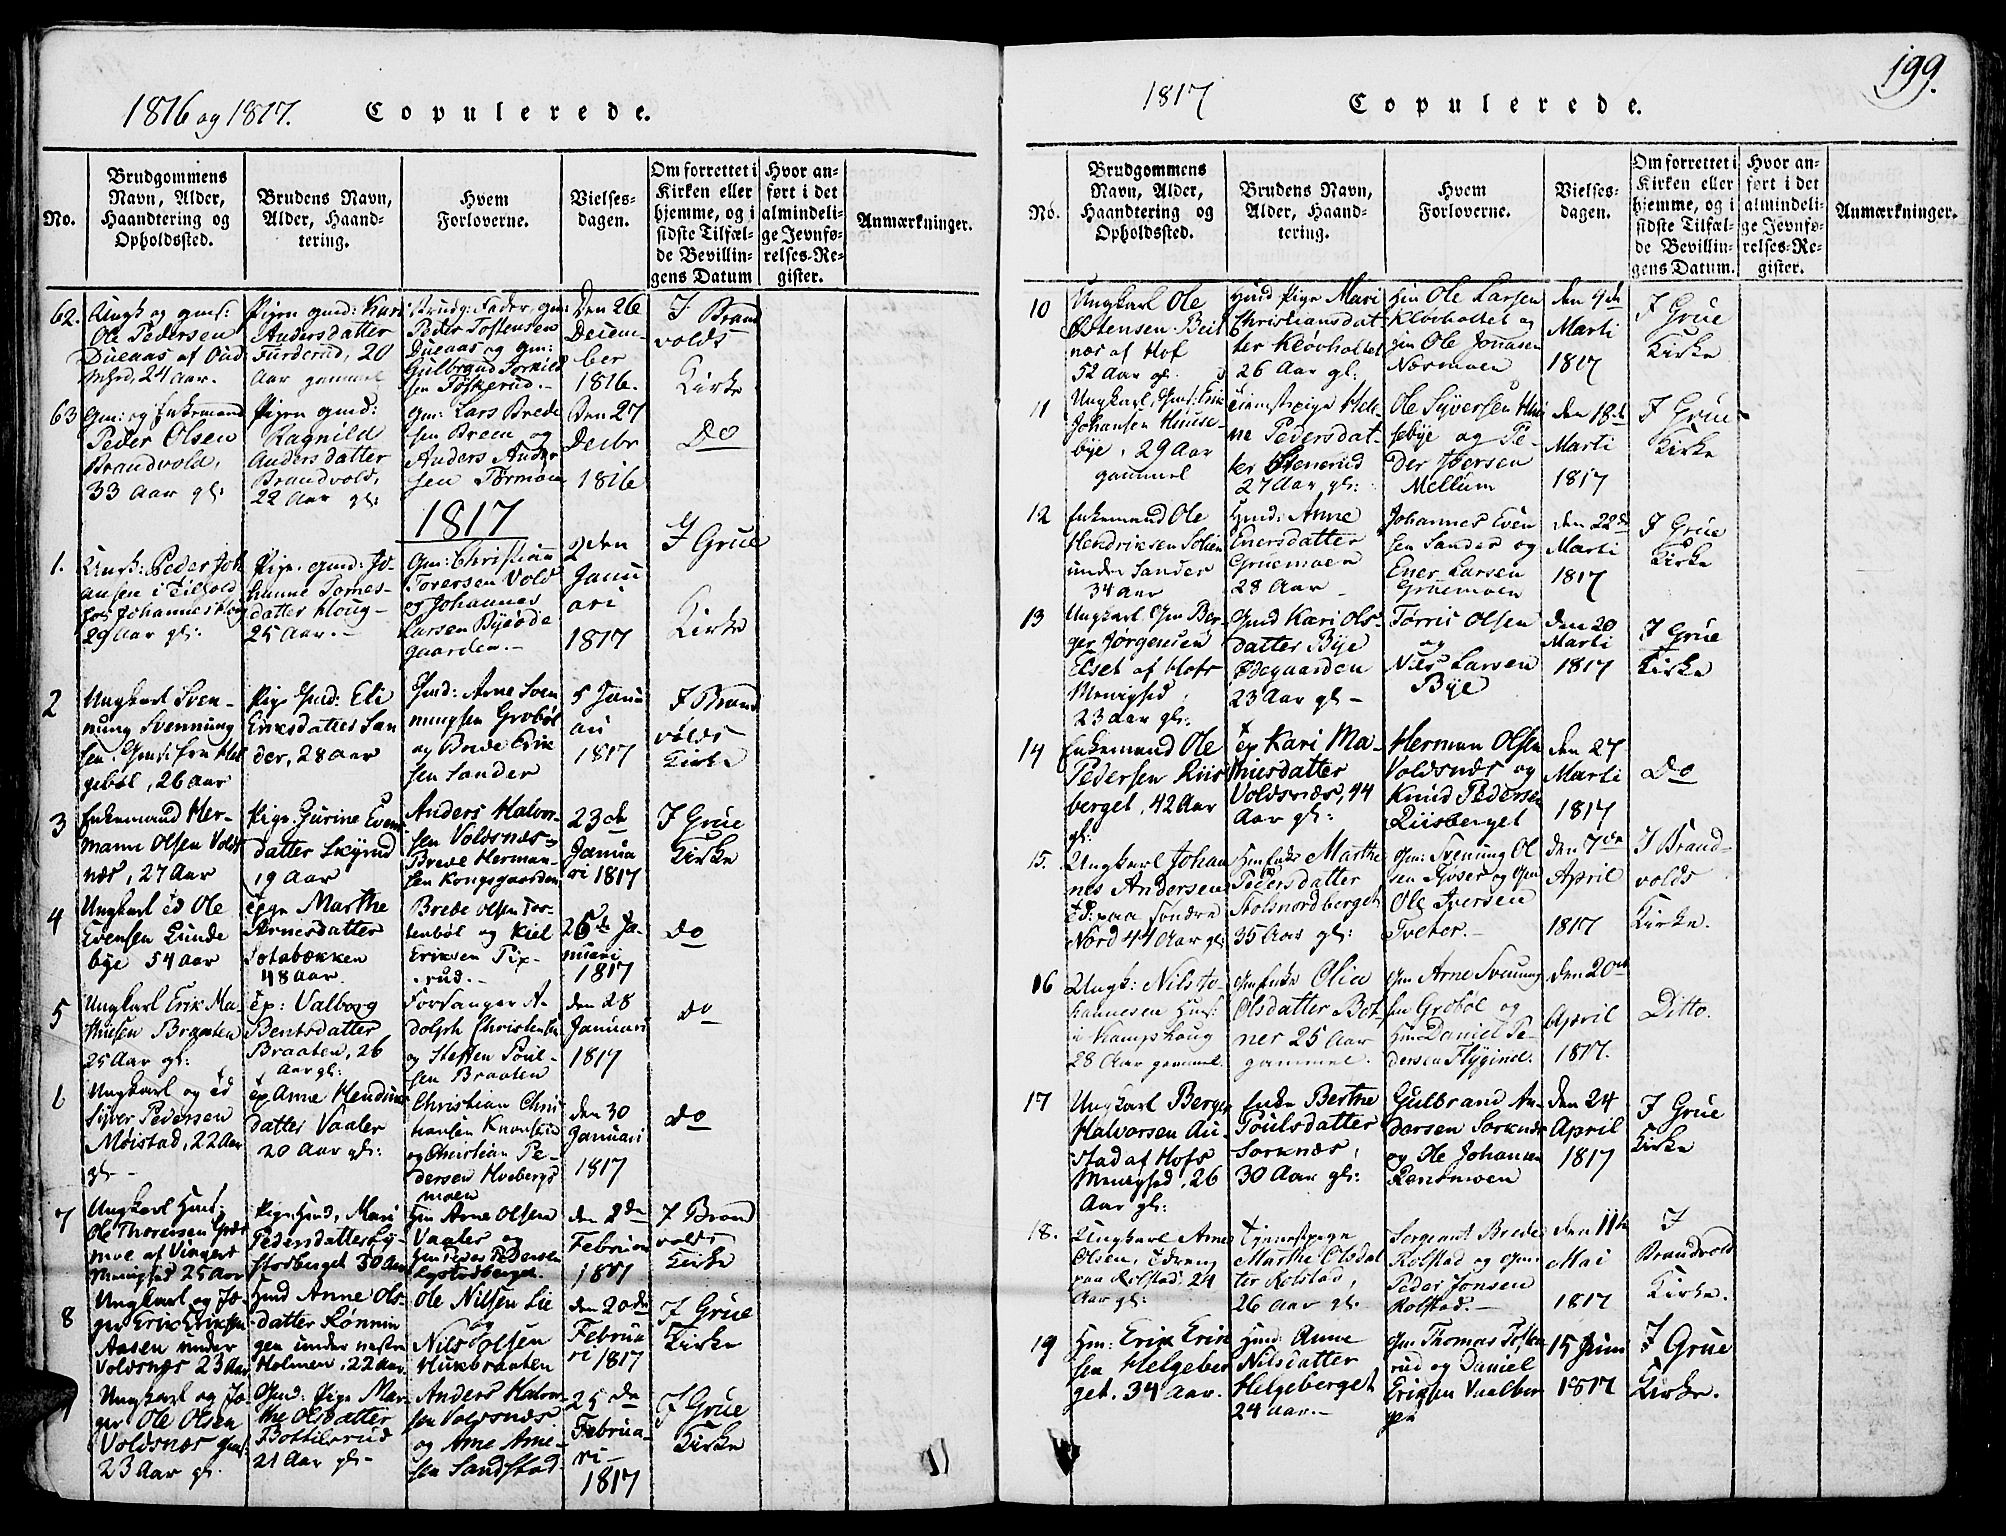 1816 og 1817. Copulerede.
No.
Brudgommens
Navn, Alder,
Haandtering og
Opholdssted.
Brudens Navn,
Alder, Haand-
tering.
Hvem
Forloverne.
Vielses-
dagen.
Om forrettet i
Kirken eller
hjemme, og i
sidste Tilfæl-
de Bevillin-
gens Datum
Hvor an-
ført i det
almindeli-
ge Jevnfø-
relses-Re-
gister.
Anmærkninger.
62.
Ole Pedersen
Dueaas af Oud
24 Aar.
Pigen gmd: Kari
Andersdatter
Furderud, 20
Aar gammel
Brudg: Fader gm:
Peder Tostensen
Dueaas og gm:
Gulbrand Torkild
sen
Den 26
Decem-
ber
1816.
I Brand
volds
Kirke
63
Gm: og Enkemand
Peder Olsen
Brandvold,
33 Aar gl:
Pigen gmd:
Ragnild
Andersdatter
Brandvold,
22 Aar gl:
Gm: Lars Brede
sen Breen og
Anders Ander
sen Tormoen
Den 27
Decbr
1816
Do
1817
1.
Ungk: Peder Joh
ansen i Tilhold
hos Johannes Houg
29 Aar gl:
Pige gmd: Jo-
hanne Tornes-
datter Houg-
25 Aar.-
Gm: Christian
Torersen Vold
og Johannes
Larsen Byeøde
gaarden.-
2den
Janu
ari
1817
I Grue
Kirke
2
Ungkarl Sven-
nung Svennung
sen, Gms: fra Hel
gebøl, 26 Aar
Pige Gmd: Eli
Eriksdatter San
der, 28 aar
Gmd: Arne Sven
nungsen Grobøl
og Brede Erik
sen Sander
5 Janu
ari
1817
I Brand
volds
Kirke
3
Enkemand Her-
mann Olsen Volds
næs, 27 Aar
Pige. Gurine Evens
datter Skyrud
19 Aar
Anders Halvor-
sen Voldsnæs
Brede Herman-
sen Kongsgaarden
23de
Janua
ri 1817
I Grue
Kirke
4
Ungkarl ed Ole
Evensen Lunde
bye 54 aar
Marthe
Arnesdatter
Sotabækken
48 aar
Brede Olsen Tor-
tenbøl og Kiel
Eriksen Pip-
rud.-
26de Ja-
nuari
1817
do
5
Ungkarl Erik Ma
thiesen Braaten
25 Aar gl:
ep: Valborg
Bentsdatter
Braaten, 26
Aar gl:
Forsanger A-
dolph Christensen
og Steffen Poul-
sen Braaten
den 28
Januari
1817
do
6
Ungkarl og ed
Siver Pedersen
Møistad, 22 Aar
gl-
ep Anne Hendriks
datter Vaaler
20 Aar gl:
Christian Chris
tiansen
og Christian Pe-
dersen Hvebergs
moen
den 30
Januari
1817
do
7
Ungkarl Hms:
Ole Thoresen
moe af Vinger
Menighed 25 Aar
Pige: Hmd, Mari
Pedersdatter Ly-
storberget 30 Aar
Hm Arne Olsen
Vaaler og
Hm Peder Pedersen
Lystorberget.
den 2den
Februar
1817
I Brand
volds
Kirke
8
Ungkarl og Jæ-
ger Erik Eriksen
Aasen under
Voldsnæs 23 Aar
Hmd Anne Ols-
datter Rønnin
gen under
Holmen, 22 aar
Ole Nilsen Lie
og
Nils Olsen
Husbraaten
den 20de
Februa
ri 1817
I Grue
Kirke
9
Ungkarl og Jæ-
ger Ole Olsen
Voldsnæs
23 Aar gl.
Gmd: Pige Mar-
the Olsdatter
Bottilsrud
21 Aar gl-
Anders Halvor
sen Voldsnæs
og Arne Arne-
sen Sandstad
25de
Februa-
ri-
1817
I Grue
Kirke
1817 Copulerede. 199.
No.
Brudgommens
Navn, Alder,
Haandtering og
Opholdssted.
Brudens Navn,
Alder, Haand-
tering.
Hvem
Forloverne.
Vielses-
dagen.
Om forrettet i
Kirken eller
hjemme, og i
sidste Tilfæl-
de Bevillin-
gens Datum.
Hvor an-
ført i det
almindeli-
ge Jevnfø-
relses-Re-
gister.
Anmærkninger.
10
Ungkarl Ole
Østensen Beit
næs af Hof
52 Aar gl.
Hmd Pige Mari
Christiansdat-
ter Kløvholtet
26 Aar gl:
Hm Ole Larsen
Kløvholtet og
Hm Ole Jonasen
Næsmoen
den 4de
Marti
1817
I Grue
Kirke
11
Ungkarl, Gms: Erik
Johansen Huuse-
bye, 29 Aar
gammel
Tienestpige Hel-
ne Pedersdat-
ter Stenerud
27 Aar gl:
Ole Syversen Huu
sebye og Pe-
der Iversen
Mellum
den 18de
Marti
1817
I Grue
Kirke
12
Enkemand Ole
Hendriksen Solien
under Sander
34 aar
Hmd: Anne
Enersdatter
Gruemoen
28 Aar
Johannes Even
sen Sander og
Ener Larsen
Gruemoen
den 22de
Marti
1817
I Grue
Kirke
13
Ungkarl Gm Ber-
ger Jørgensen
Elset af Hofs
Menighed,
23 Aar gl:
Gmd Kari Ols-
datter Bye
Ødegaarden
23 Aar gl-
Torris Olsen
og
Nils Larsen
Bye
den 20
Marti
1817
I Grue
Kirke
14
Enkemand Ole
Pedersen Riis
berget, 42 Aar
gl:
ep Kari Ma-
thiesdatter
Voldsnæs, 44
Aar gl:
Herman Olsen
Voldsnæs og
Knud Pedersen
Riisberget
den 27
Marti
1817
do
15.
Ungkarl Johan
nes Andersen
Ed: paa søndre
Nord 44 Aar gl:
Hm Enke Marthe
Pedersdatter
Stolsnordberget
35 Aar gl:
Gm: Svenung Ol
sen Tyser og Gm
Ole Iversen
Tveter.-
den 7de
April
1817
I Brand-
volds
Kirke.
16
Ungk: Nils Jo-
hannesen Hms:
i Kampshoug
28 Aar gammel.
Gm Enke Olia
Olsdatter Bot-
ner 25 Aar
gammel.
Gm Arne Svenung
sen Grobøl og
Hm Daniel Pe-
dersen Flygind.
den 20de
April
1817.
Ditto.
17
Ungkarl Berger
Halvorsen Au-
stad af Hofs
Menighed, 26
Aar gl:
Enke Berthe
Poulsdatter
Sorknæs,
30 Aar gl:
Gulbrand An-
dersen Sorknæs
og Ole Johannes
Rensmoen
den 24
April
1817
I Grue
Kirke
18.
Ungkarl Arne
Olsen, Edreng
paa Rolstad, 24
Aar gl:
Tjenestpige
Marthe Olsdat
ter Rolstad,
26 Aar gl.
Sergeant Brede
Rolstad og Gm:
Peder Jonsen
Rolstad.-
den 11te
Mai
1817
I
Brandvold
Kirke.
19
Hm: Erik Erik
sen Helgeber
get. 34 Aar.
Hmd: Anne
Nilsdatter
Helgeberget
24 Aar.-
Gm Thomas Tosken
rud og Daniel
Eriksen Vaalber
get
15 Juni
1817
I Grue
Kirke.